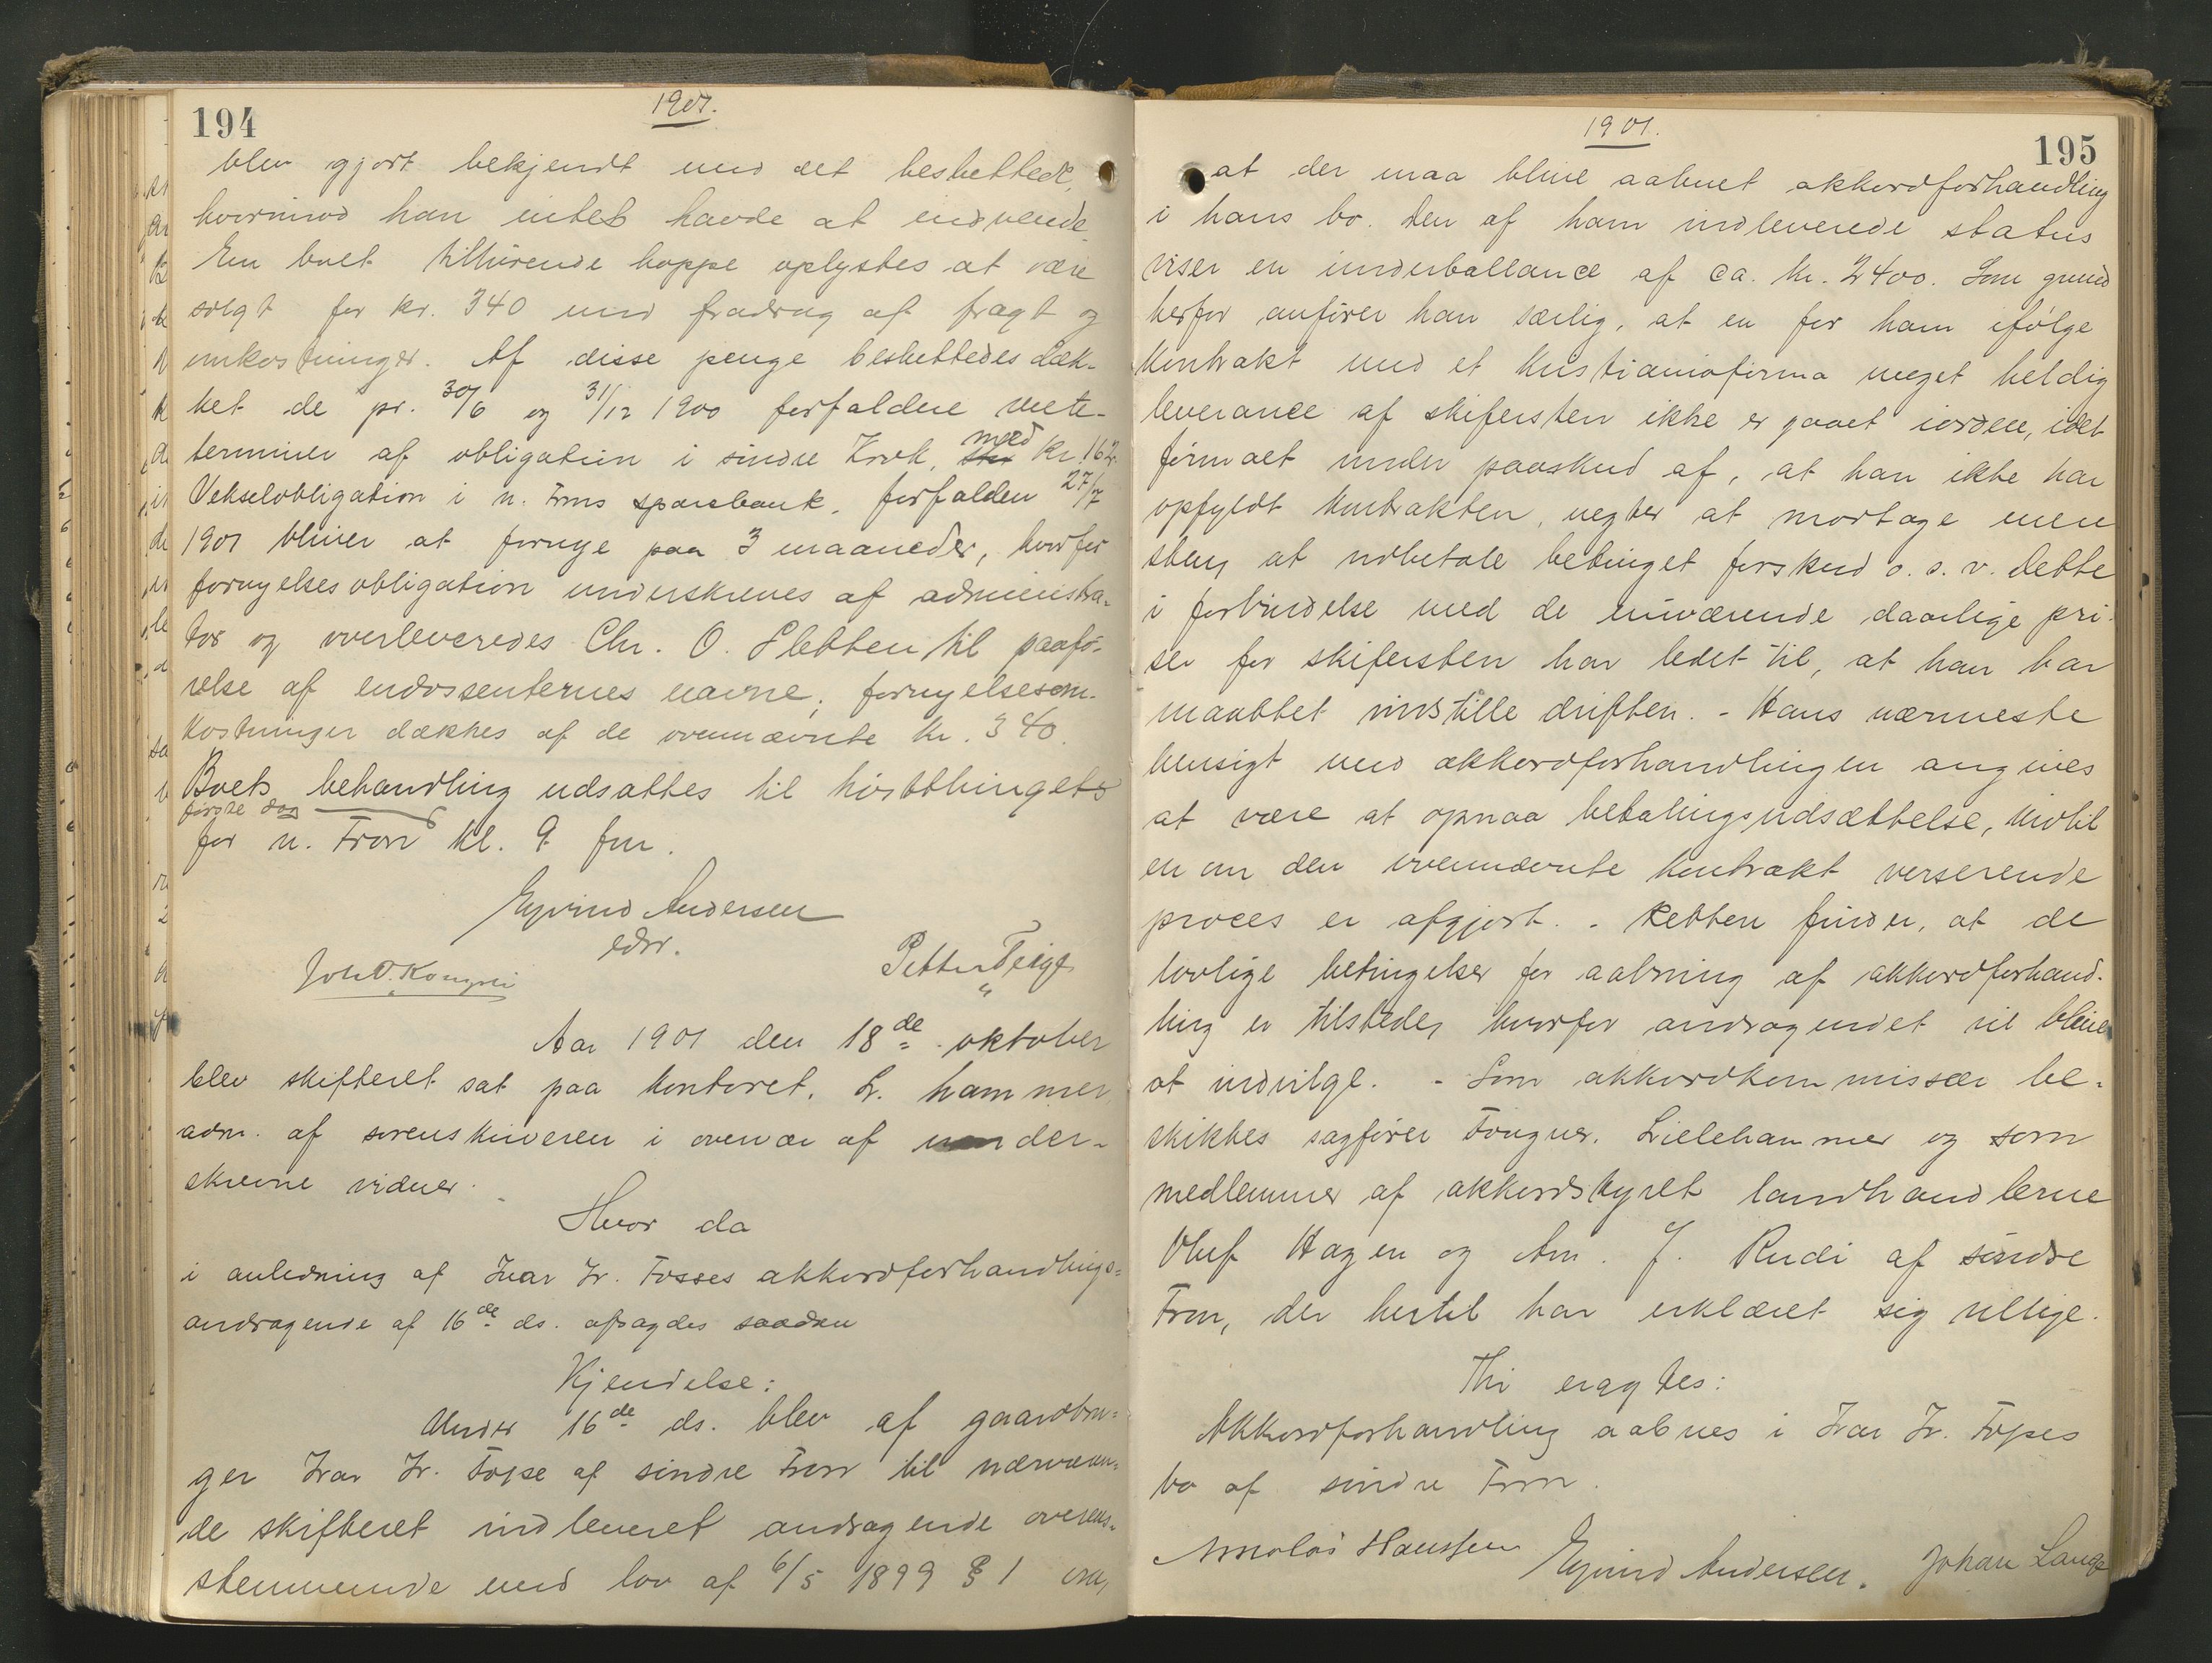 194
1901.
blev gjort bekjendt med det besluttede,
hvorimod han intet havde at indvende.
En boet tilhørende hoppe oplystes at være
solgt for kr. 340 med fradrag af fragt og
omkostninger. Af disse penge besluttedes dæk-
ket de pr. 30/6 og 31/12 1900 forfaldne rente-
terminer af obligation i søndre Krok, med kr 162.
Vekselobligation i n. Frons sparebank, forfalden 27/7
1901 bliver at fornye paa 3 maaneder, hvorfor
fornyelsesobligation underskreves af administra-
tor og overleveredes Chr. O. Sletten til paafø-
relse af endossenternes navne; fornyelsesom-
kostninger dækkes af de ovennævnte kr. 340.
Boets behandling udsattes til høstthingets
første dag
for n. Fron kl. 9 fm.
Eyvind Andersen
edsv.
Joh O. Kongsli
Petter Teige
"
Aar 1901 den 18de oktober
blev skifteret sat paa kontoret, L. hammer
adm. af sorenskriveren i overvær af under-
skrevne vidner.
Hvor da
i anledning af Ivar Ir. Fosses akkordforhandlings-
andragende af 16de ds. afsagdes saadan
Kjendelse:
Under 16de ds. blev af gaardbru-
ger Ivar Ir. Fosse af søndre Fron til nærværen-
de skifteret indleveret andragende overens-
stemmende med lov af 6/5 1899 § 1 om,
1901.
195
at der maa blive aabnet akkordforhandling
i hans bo. Den af ham indleverede status
viser en underballance af ca. kr. 2400. Som grund
herfor anfører han særlig, at en for ham ifølge
kontrakt med et Kristianiafirma meget heldig
leverance af skifersten ikke er gaaet iorden, idet
firmaet under paaskud af, at han ikke har
opfyldt kontrakten, negter at modtage mere
sten, at udbetale betinget forskud o. s. v. Dette
i forbindelse med de nuværende daarlige pri-
ser for skifersten har ledet til, at han har
maattet indstille driften. - Hans nærmeste
hensigt med akkordforhandlingen angives
at være at opnaa betalingsudsættelse, indtil
en om den ovennævnte kontrakt verserende
proces er afgjort. - Retten finder, at de
lovlige betingelser for aabning af akkordforhand-
ling er tilstede, hvorfor andragendet vil blive
at indvilge. - Som akkordkommissær be-
skikkes sagfører Fougner, Lillehammer og som
medlemmer af akkordstyret landhandlerne
Oluf Hagen og Am. J. Rudi af søndre
Fron, der hertil har erklæret sig villige.
Thi eragtes:
Akkordforhandling aabnes i Ivar Ir. Fosses
bo af søndre Fron.
Hanssen
Eyvind Andersen.
Johan Lange